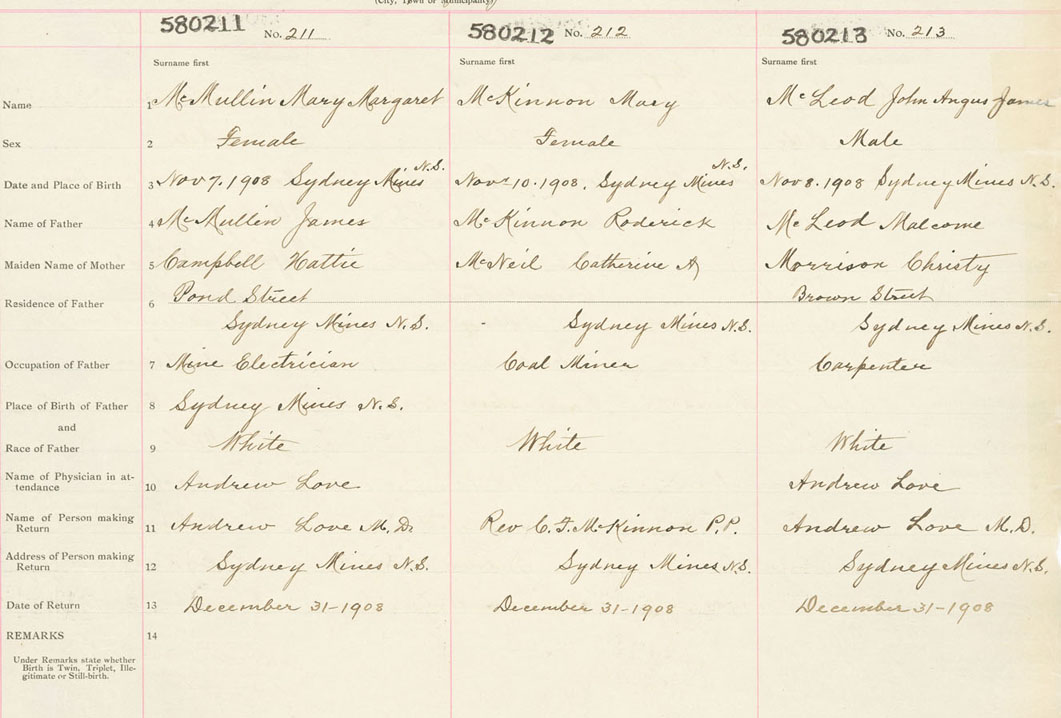 (City, Town or Municipality)
580211 No. 211 580212 No. 212 580213 No. 213
Surname first Surname first Surname first
Name 1 McMullin Mary Margaret McKinnon Mary McLeod John Angus James
Sex 2 Female Female Male
Date and Place of Birth 3 Nov 7. 1908 Sydney Mines N.S. Nov 10. 1908. Sydney Mines N.S. Nov 8. 1908 Sydney Mines N.S.
Name of Father 4 McMullin James McKinnon Roderick McLeod Malcome
Maiden Name of Mother 5 Campbell Hattie McNeil Catherine A Morrison Christy
Residence of Father 6 Pond Street Brown Street
Sydney Mines N.S. Sydney Mines N.S. Sydney Mines N.S.
Occupation of Father 7 Mine Electrician Coal Miner Carpenter
Place of Birth of Father 8 Sydney Mines N.S.
and
Race of Father 9 White White White
Name of Physician in at-
tendance 10 Andrew Love Andrew Love
Name of Person making
Return 11 Andrew Love M.D. Rev C.F. McKinnon P.P. Andrew Love M.D.
Address of Person making
Return 12 Sydney Mines N.S. Sydney Mines N.S. Sydney Mines N.S.
Date of Return 13 December 31-1908 December 31-1908 December 31-1908
REMARKS 14
Under Remarks state whether
Birth is Twin, Triplet, Ille-
gitimate or Still-birth.